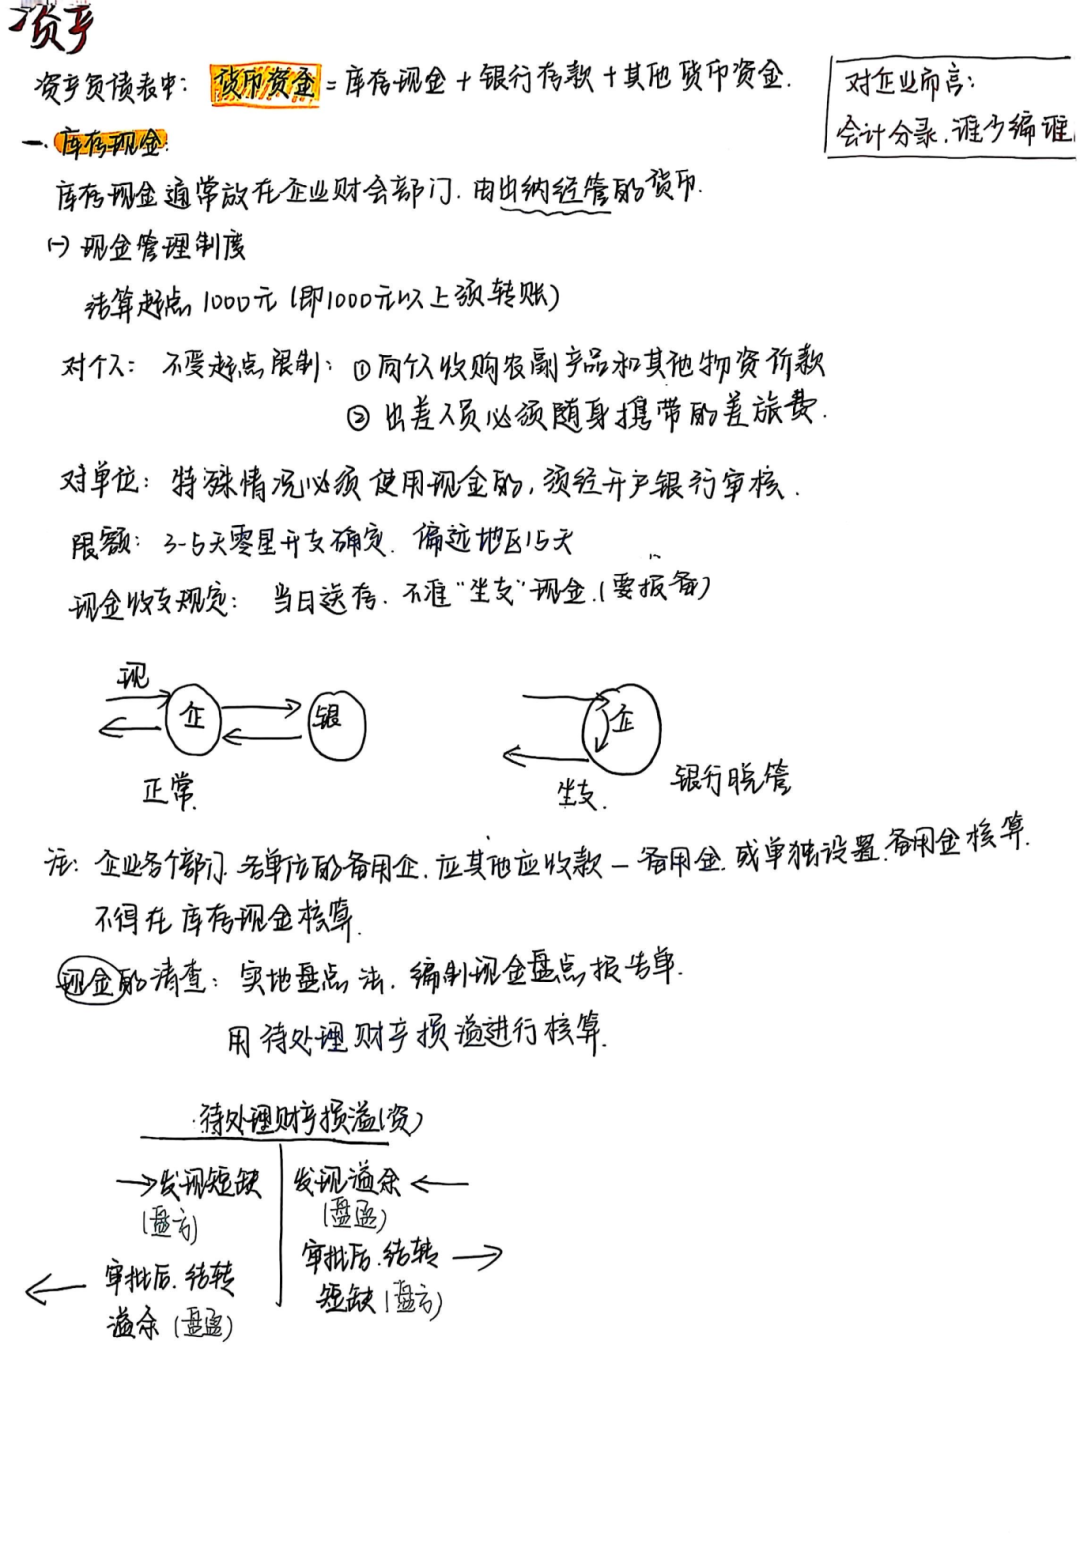 资产
资产负债表中: 货币资金 = 库存现金 + 银行存款 + 其他货币资金.
对企业而言:
会计分录.谁少编谁
一. 库存现金:
库存现金通常放在企业财会部门.由出纳经管的货币.
(一) 现金管理制度
结算起点1000元 (即1000元以上须转账)
对个人: 不受起点限制: ①向个人收购农副产品和其他物资价款
② 出差人员必须随身携带的差旅费.
对单位: 特殊情况必须使用现金的,须经开户银行审核.
限额: 3-5天零星开支确定. 偏远地区15天
现金收支规定: 当日送存.不准"坐支"现金.(要报备)
现
企 银
正常.
企
坐支.
银行脱管
注: 企业各个部门.各单位的备用金.应其他应收款—备用金.或单独设置.备用金核算.
不得在库存现金核算.
现金的清查: 实地盘点法.编制现金盘点报告单.
用待处理财产损溢进行核算.
待处理财产损溢(资)
→发现短缺
(盘亏)
审批后.结转
溢余 (盘盈)
发现溢余←
(盘盈)
审批后.结转→
短缺 (盘亏)